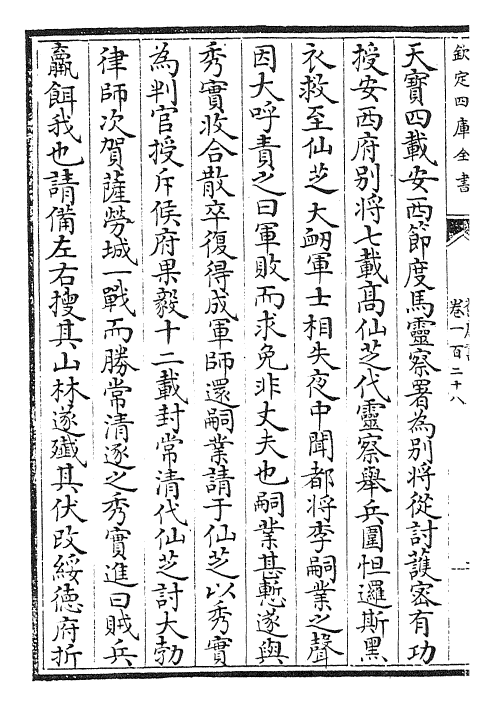 欽定四庫全書
卷一百二十八
天寶四載安西節度馬靈察署為别將從討護宻有功
授安西府别將七載髙仙芝代靈察舉兵圍怛邏斯黑
衣救至仙芝大衂軍士相失夜中聞都將李嗣業之聲
因大呼責之曰軍敗而求免非丈夫也嗣業甚慙遂與
秀實收合散卒復得成軍師還嗣業請于仙芝以秀實
為判官授斥候府果毅十二載封常清代仙芝討大勃
律師次賀薩勞城一戰而勝常清逐之秀實進曰賊兵
羸餌我也請備左右搜其山林遂殲其伏改綏徳府折